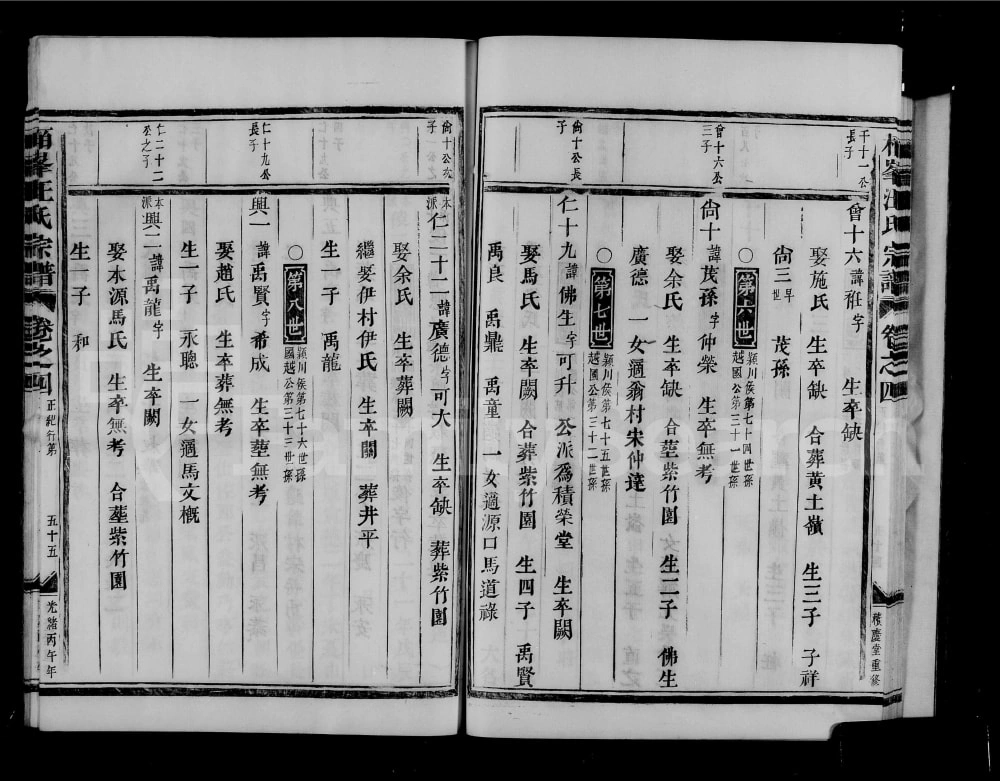 汪氏宗譜 卷之四
積慶堂重修
千十一公長子
曾十六 諱 字 生卒缺
娶施氏 生卒缺 合葬黃土嶺 生三子 子祥
尙三 早世 茂孫
○ 第六世 潁川侯第七十四世孫 越國公第三十一世孫
曾十六公三子
尙十 諱茂孫 字仲榮 生卒無考
娶余氏 生卒缺 合塟紫竹園 生二子 佛生
廣德 一女適翁村宋仲達
○ 第七世 潁川侯第七十五世孫 越國公第三十二世孫
尙十公長子
仁十九 諱佛生 字可升 公派爲積榮堂 生卒闕
娶馬氏 生卒闕 合葬紫竹園 生四子 禹賢
禹良 禹鼎 禹童 一女適源口馬道祿
尙十公次子
本派 仁二十二 諱廣德 字可大 生卒缺 葬紫竹園
娶余氏 生卒葬闕
繼娶伊村伊氏 生卒闕 葬井平
生一子 禹龍
○ 第八世 潁川侯第七十六世孫 越國公第三十三世孫
仁十九公長子
興一 諱禹賢 字希成 生卒塟無考
娶趙氏 生卒葬無考
生一子 永聰 一女適馬文概
仁二十二公之子
本派 興二 諱禹龍 字 生卒闕
娶木源馬氏 生卒無考 合塟紫竹園
生一子 和
汪氏宗譜 卷之四 正紀行第 五十五 光緒丙午年